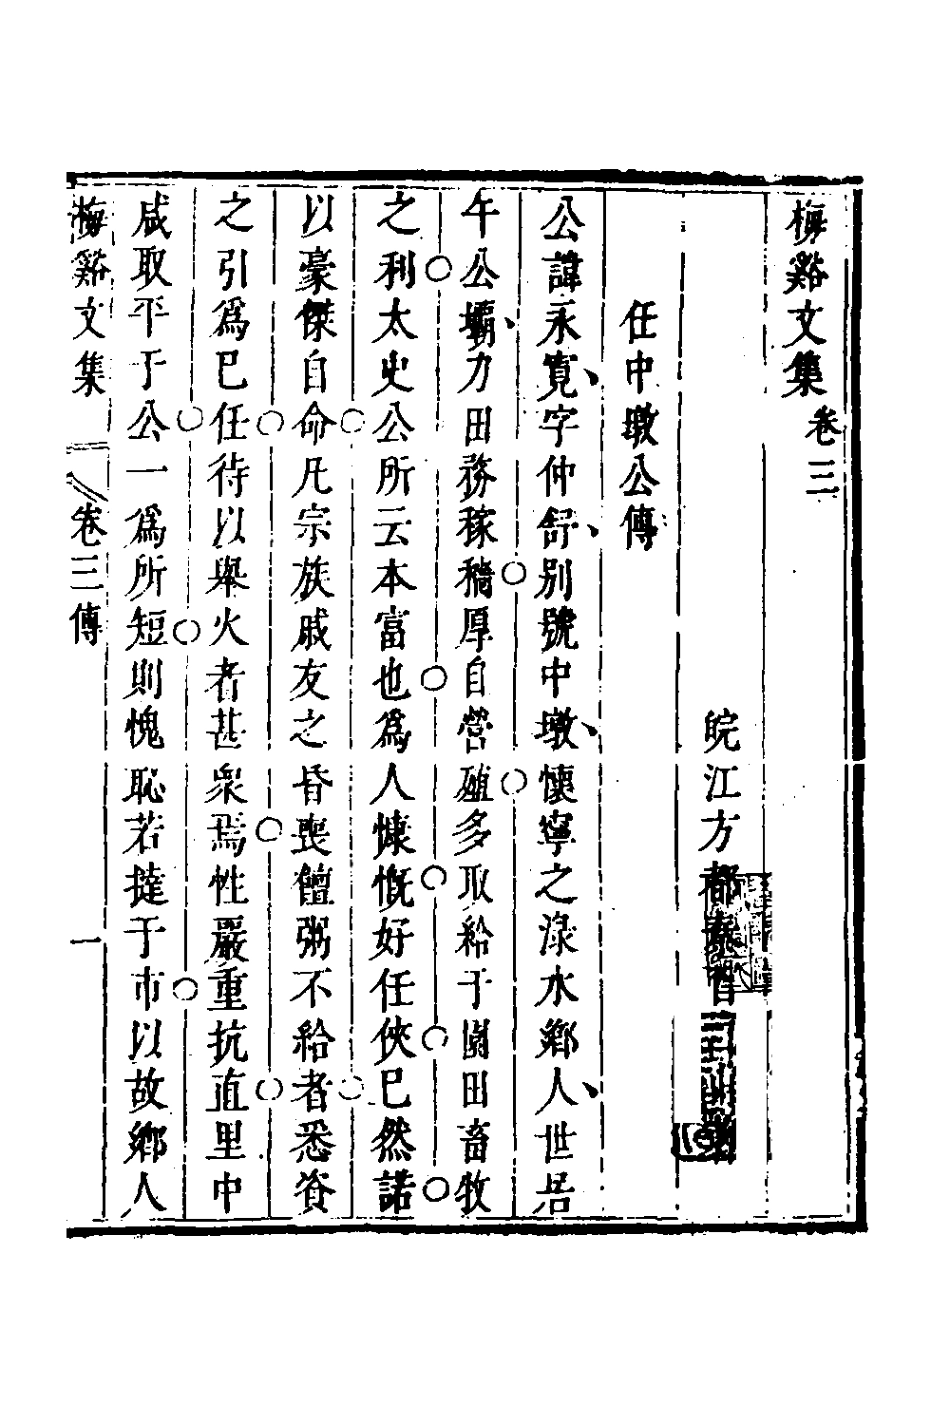 梅谿文集卷三
皖江方都秦智
任中墩公傳
公諱永寛字仲舒別號中墩懷寧之渌水鄉人世居
午公壩力田務稼穡厚自營殖多取給于園田畜牧
之利太史公所云本富也爲人慷慨好任俠已然諾
以豪傑自命凡宗族戚友之昏喪饘粥不給者悉資
之引爲已任待以舉火者甚衆焉性嚴重抗直里中
咸取平于公一爲所短則愧恥若撻于市以故鄉人
梅谿文集 卷三傳 一